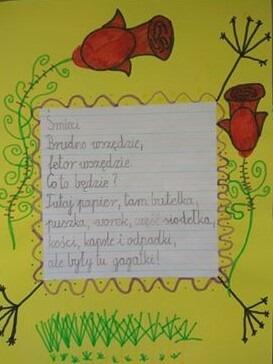 Śmieci
Brudno wszędzie,
fetor wszędzie.
Co to będzie?
Tutaj papier, tam butelka,
puszka, worek, część siodełka,
kości, kapcie i odpadki,
ale były tu gagatki!